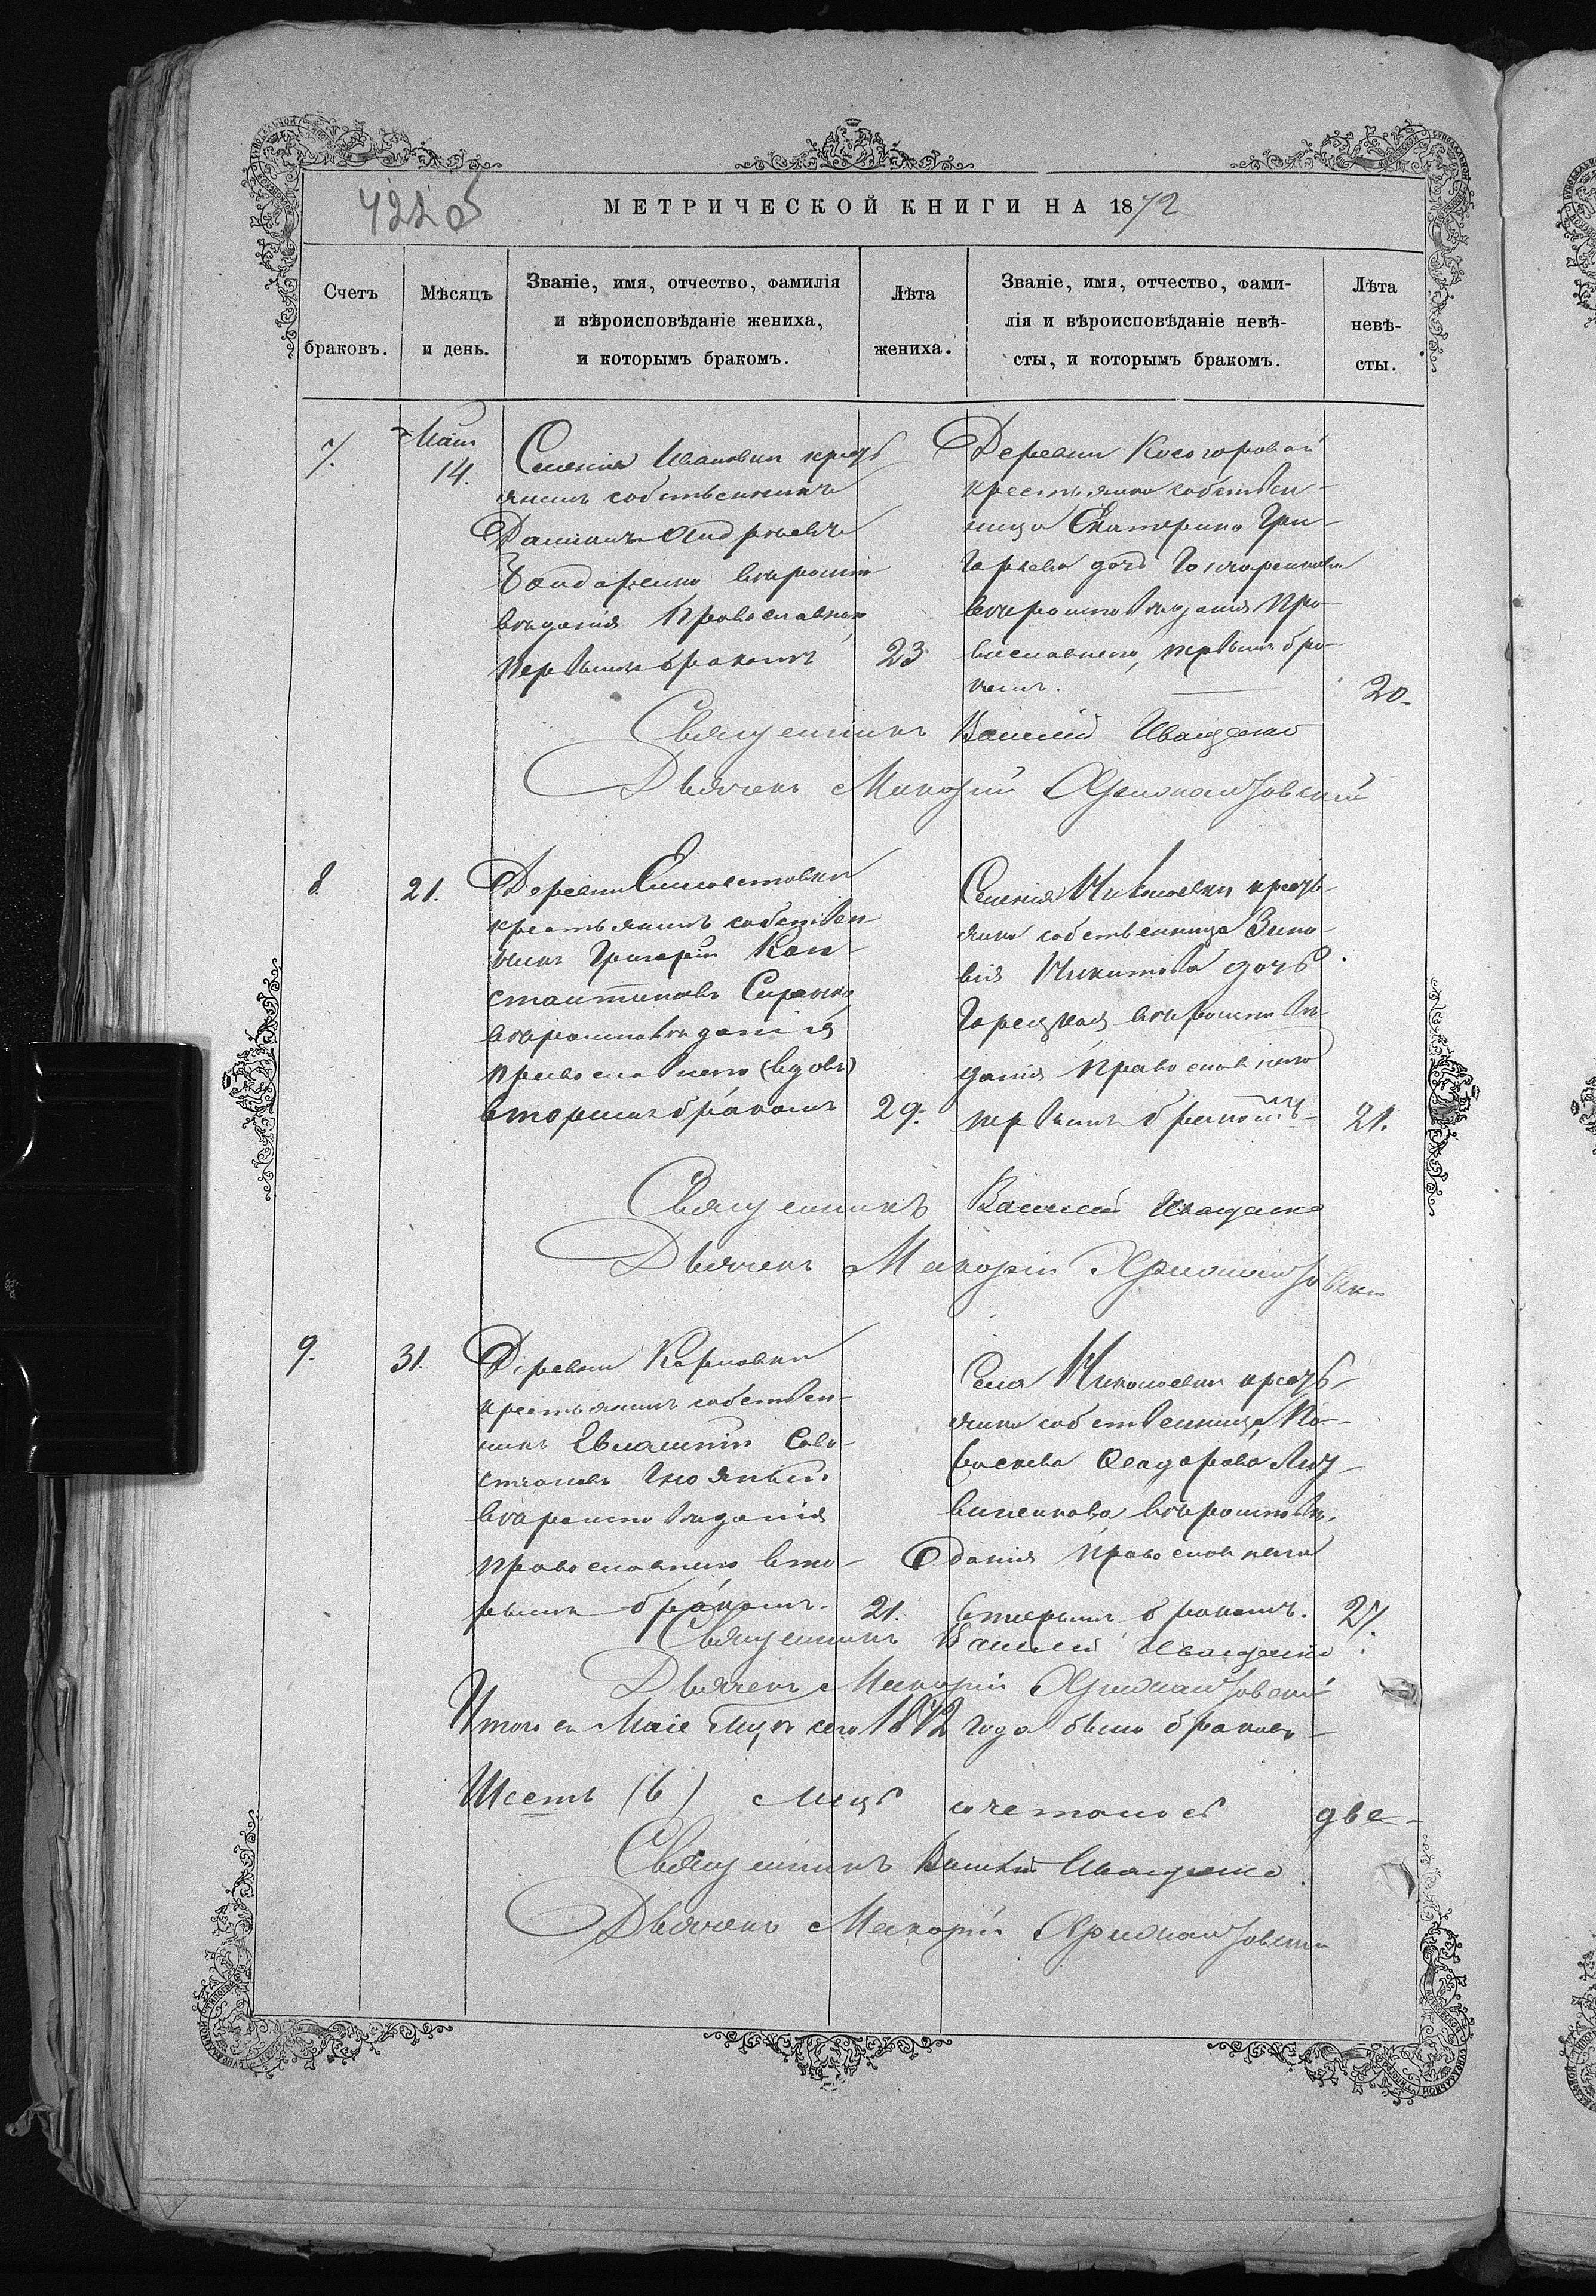 422 об
МЕТРИЧЕСКОЙ КНИГИ НА 1872
Счетъ браковъ.
Мѣсяцъ и день.
Званіе, имя, отчество, фамилія
и вѣроисповѣданіе жениха,
и которымъ бракомъ.
Лѣта жениха.
Званіе, имя, отчество, фами-
лія и вѣроисповѣданіе невѣ-
сты, и которымъ бракомъ.
Лѣта невѣ-
сты.
7.
Маія
14.
Селенія Ивановки кресть
янинъ собственникъ
Даміанъ Андреевъ
Бондаренко вѣроиспо
вѣданія Православнаго
первымъ бракомъ
23
Деревни Косогоровой
крестьянка собствен-
ница Екатерина Гри-
горьева дочь Гончаренкова
вѣроисповѣданія Пра-
вославнаго, первымъ бра-
комъ.
20.
Священникъ Василій Иващенко
Дьячекъ Макарій
8
21.
Деревни Елисаветовки
крестьянинъ собствен-
никъ Григорій Кон-
стантиновъ Сиренко
вѣроисповѣданія
православнаго (вдовъ)
вторымъ бракомъ
29.
Селенія Николаевки кресть-
янка собственница Зино-
вія Никитова дочь
Горецкая вѣроисповѣ-
данія Православнаго
первымъ бракомъ
21.
Священникъ Василій Иващенко
Дьячекъ Макарій
9.
31.
Деревни Карповки
крестьянинъ собствен-
никъ Евлампій Сава-
стіановъ
вѣроисповѣданія
православнаго вто-
рымъ бракомъ.
21.
Села Николаевки кресть-
янка собственница Па-
раскева Феодорова Лит-
виненкова вѣроисповѣ-
данія Православнаго
вторымъ бракомъ.
27.
Священникъ Василій Иващенко
Дьячекъ Макарій
Итого въ Маіе Мцѣ сего 1872 года было браковъ
Шесть (6) лицъ сочеталось две-
Священникъ Василій Иващенко
Дьячекъ Макарій